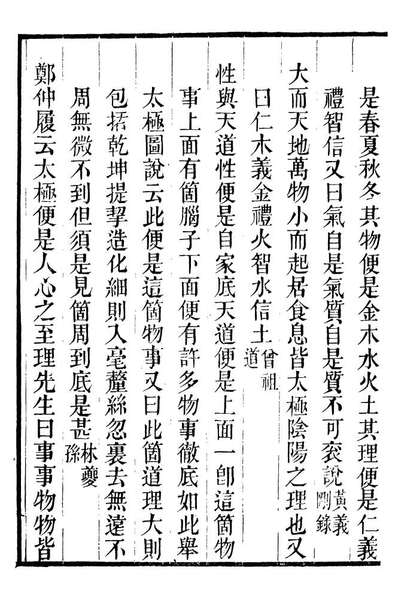 是春夏秋冬其物便是金木水火土其理便是仁義
禮智信又曰氣自是氣質自是質不可衮說黃義剛錄
大而天地萬物小而起居食息皆太極陰陽之理也又
曰仁木義金禮火智水信土曾祖道
性與天道性便是自家底天道便是上面一卽這箇物
事上面有箇腦子下面便有許多物事徹底如此舉
太極圖說云此便是這箇物事又曰此箇道理大則
包括乾坤提挈造化細則入毫釐絲忽裏去無遠不
周無微不到但須是見箇周到底是甚林夔孫
鄭仲履云太極便是人心之至理先生曰事事物物皆